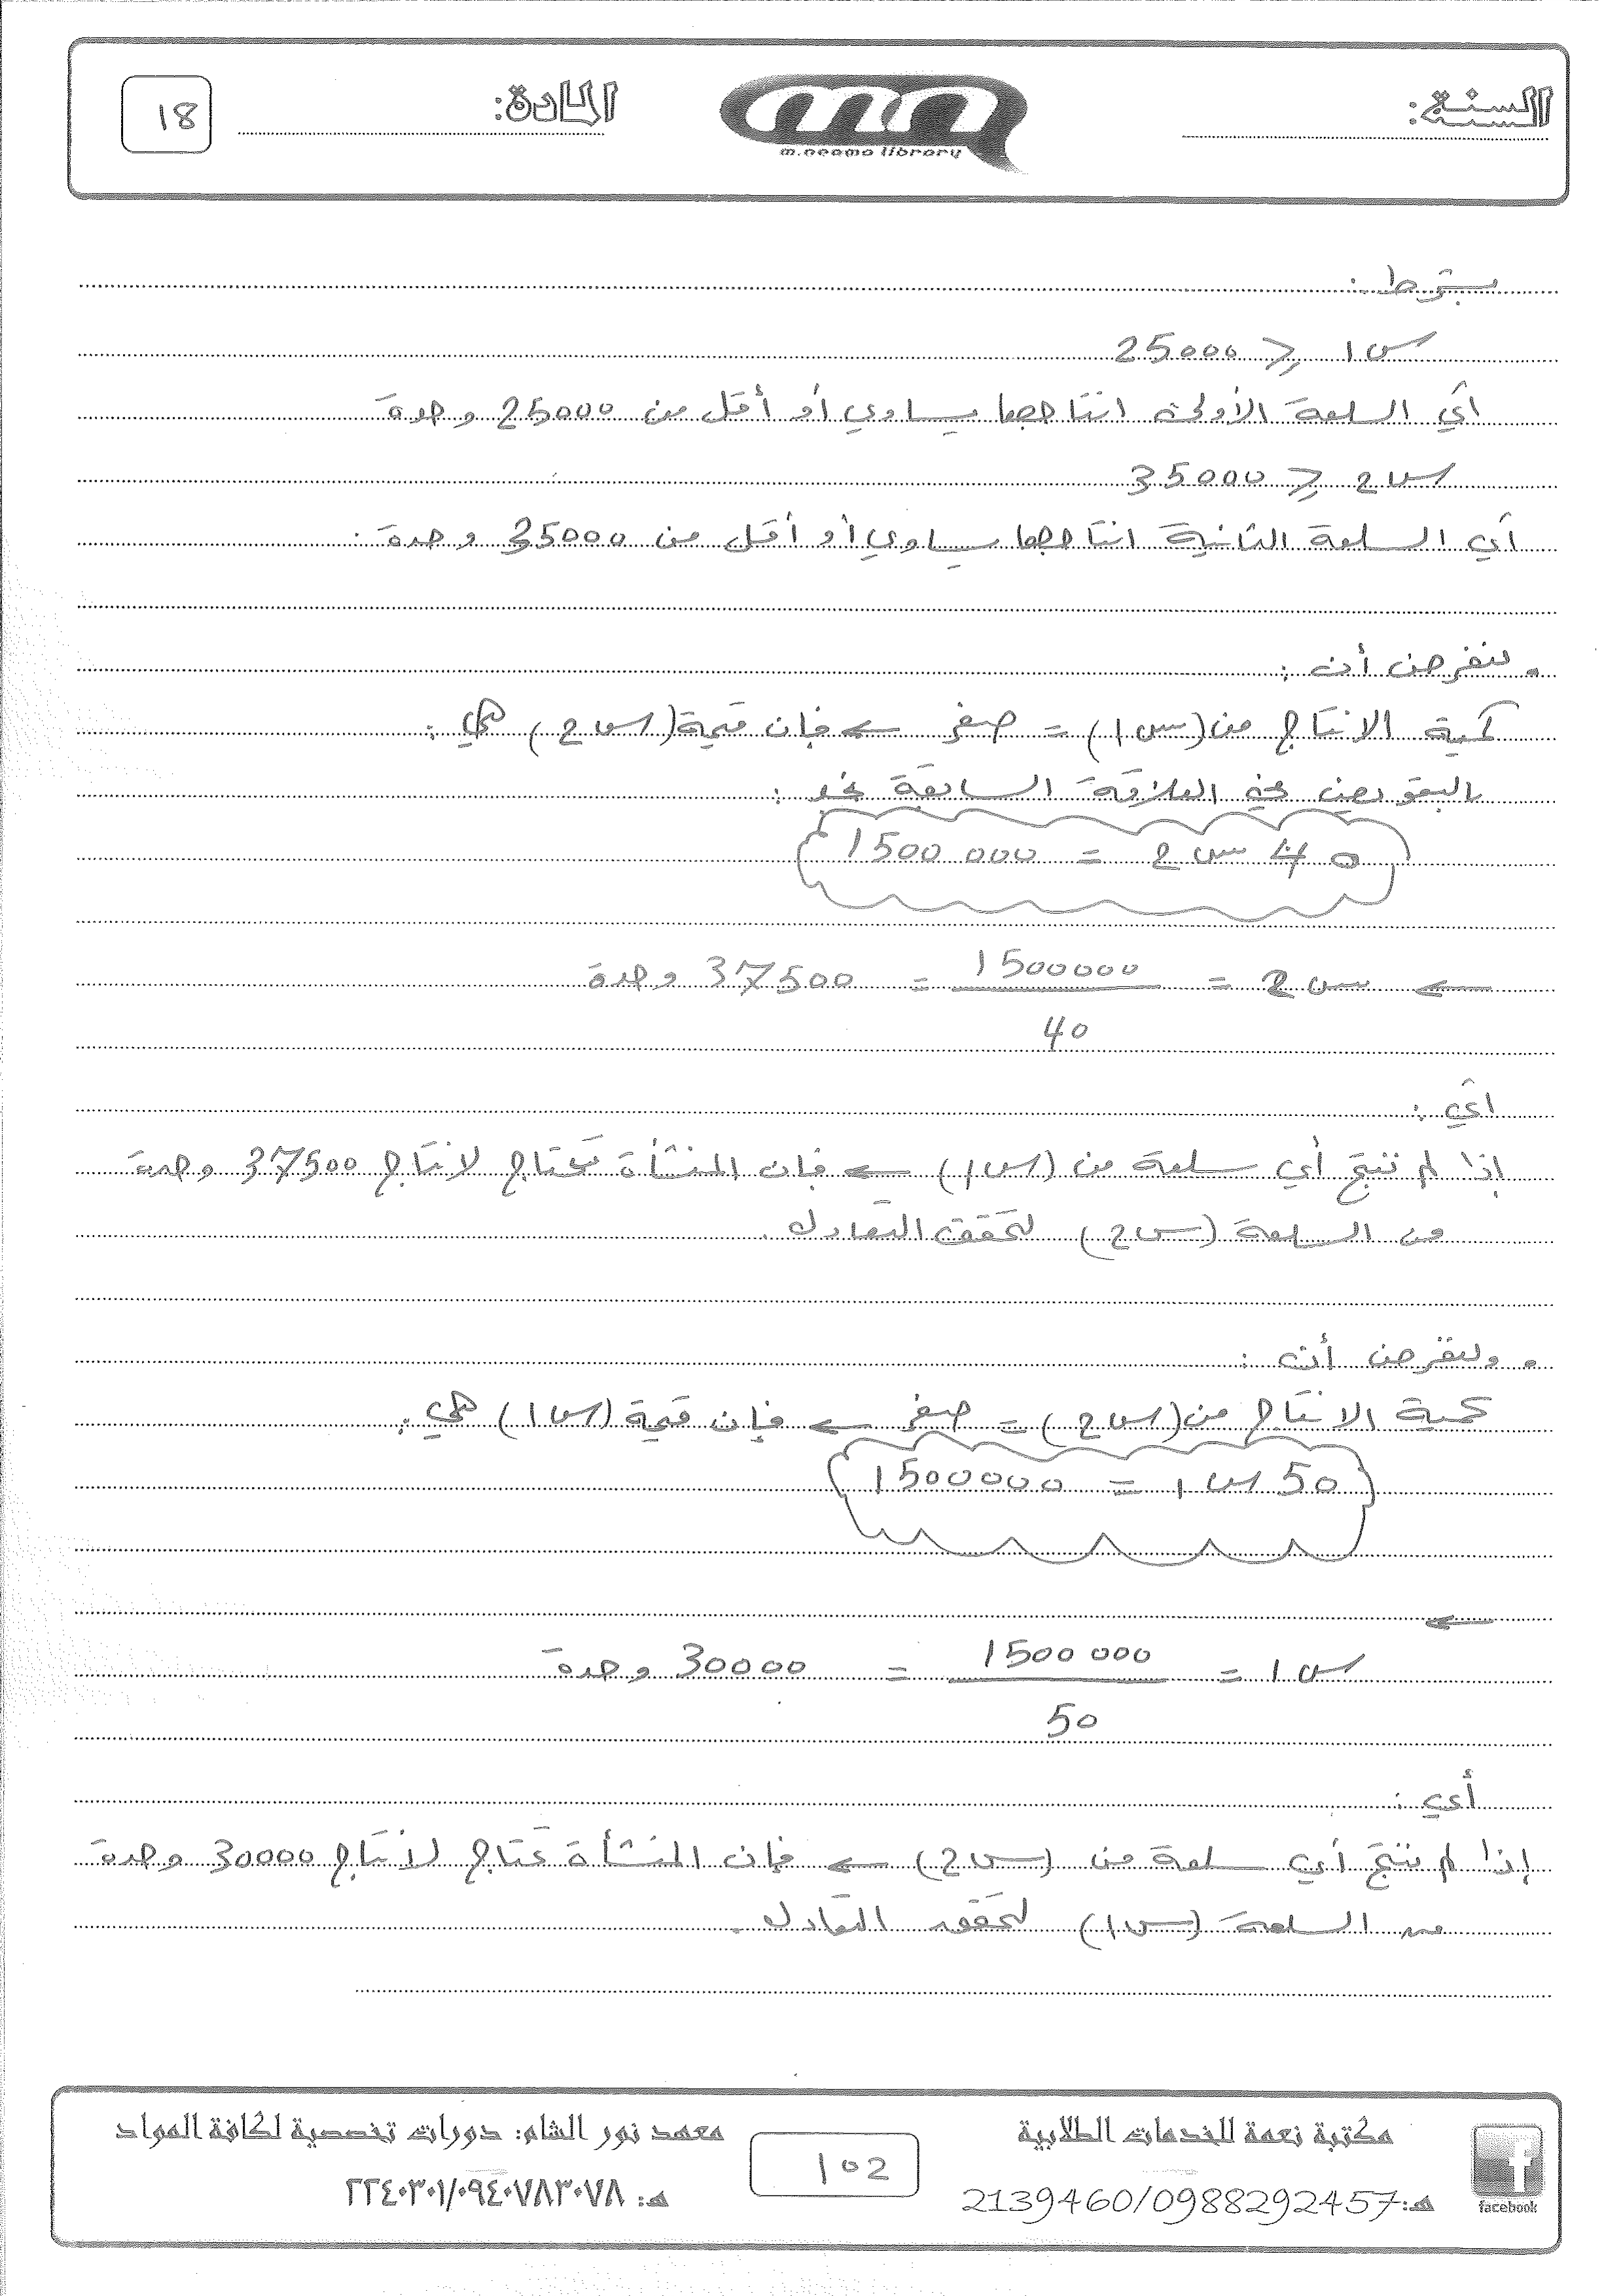 السنة:
m.neama library
المادة:
18
بشرط:
س1 ≥ 25000
أي السلعة الأولى انتاجها يساوي أو أقل من 25000 وحدة
س2 ≥ 35000
أي السلعة الثانية انتاجها يساوي أو أقل من 35000 وحدة.
• لنفرض أن:
كمية الانتاج من (س1) = صفر ← فإن قيمة (س2) هي:
بالتعويض في العلاقة السابقة نجد:
40 س2 = 1500 000
← س2 = 1500000 / 40 = 37500 وحدة
أي:
إذا لم ننتج أي سلعة من (س1) ← فإن المنشأة تحتاج لانتاج 37500 وحدة
من السلعة (س2) لتحقق التعادل.
• ولنفرض أن:
كمية الانتاج من (س2) = صفر ← فإن قيمة (س1) هي:
50 س1 = 1500000
←
س1 = 1500 000 / 50 = 30000 وحدة
أي:
إذا لم ننتج أي سلعة من (س2) ← فإن المنشأة تحتاج لانتاج 30000 وحدة
من السلعة (س1) لتحقق التعادل.
مكتبة نعمة للخدمات الطلابية
هـ: 2139460/0988292457
facebook
102
معهد نور الشام: دورات تخصصية لكافة المواد
هـ: ٢٢٤٠٣٠١/٠٩٤٠٧٨٣٠٧٨